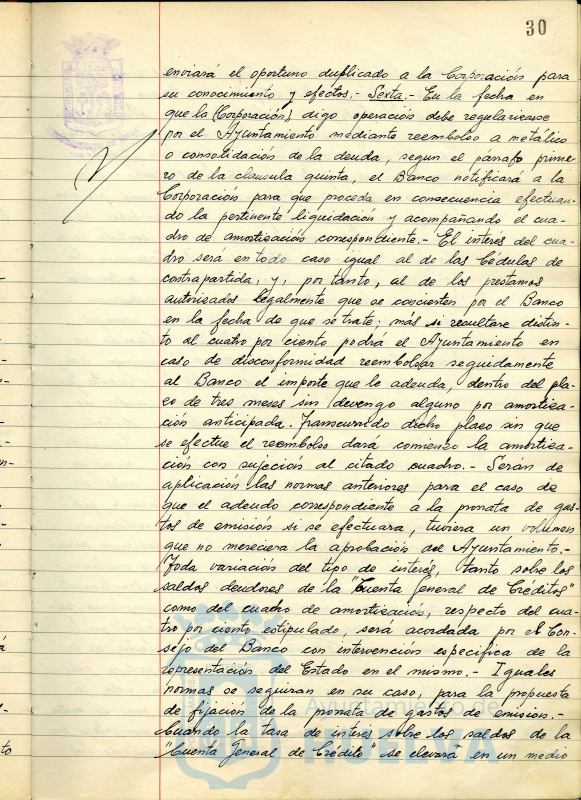 30
enviará el oportuno duplicado a la Corporación para
su conocimiento y efectos.- Sexta.- En la fecha en
que la (Corporación) digo operación debe regularizarse
por el Ayuntamiento mediante reembolso a metálico
o consolidación de la deuda, segun el párrafo prime-
ro de la clausula quinta, el Banco notificará a la
Corporación para que proceda en consecuencia efectuan-
do la pertinente liquidación y acompañando el cua-
dro de amortización correspondiente.- El interés del cua-
dro sera en todo caso igual al de las Cédulas de
contrapartida, y, por tanto, al de los prestamos
autorizados legalmente que se concierten por el Banco
en la fecha de que se trate; más si resultare distin-
to al cuatro por ciento podrá el Ayuntamiento en
caso de disconformidad reembolsar seguidamente
al Banco el importe que le adeuda, dentro del pla-
zo de tres meses sin devengo alguno por amortiza-
ción anticipada. Transcurrido dicho plazo sin que
se efectue el reembolso dará comienzo la amortiza-
ción con sujeción al citado cuadro.- Serán de
aplicación las normas anteriores para el caso de
que el adeudo correspondiente a la prorrata de gas-
tos de emisión si se efectuara, tuviera un volumen
que no mereciera la aprobación del Ayuntamiento.-
Toda variación del tipo de interés, tanto sobre los
saldos deudores de la "Cuenta General de Créditos"
como del cuadro de amortización, respecto del cua-
tro por ciento estipulado, será acordada por el Con-
sejo del Banco con intervención especifica de la
representación del Estado en el mismo.- Iguales
normas se seguiran en su caso, para la propuesta
de fijación de la prorrata de gastos de emision.-
Cuando la tasa de interes sobre los saldos de la
"Cuenta General de Crédito" se elevará en un medio
Ayuntamiento de